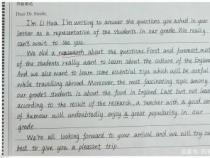 Dear Ms. Smith,
I'm Li Hua. I'm writing to answer the questions you asked in your
letter as a representative of the students in our grade. We really
can't wait to see you.
We did a research about the questions. First and foremost, most
of the students really want to learn about the culture of the England.
And we also want to learn some essential tips which will be useful
while travelling abroad. Moreover, the most fascinating topic among
our grade's students is about the food in England. Last but not least,
according to the result of the research, a teacher with a good sense
of humour will undoubtedly enjoy a great popularity in our
grade.
We're all looking forward to your arrival and we will try our
best to give you a pleasant trip.